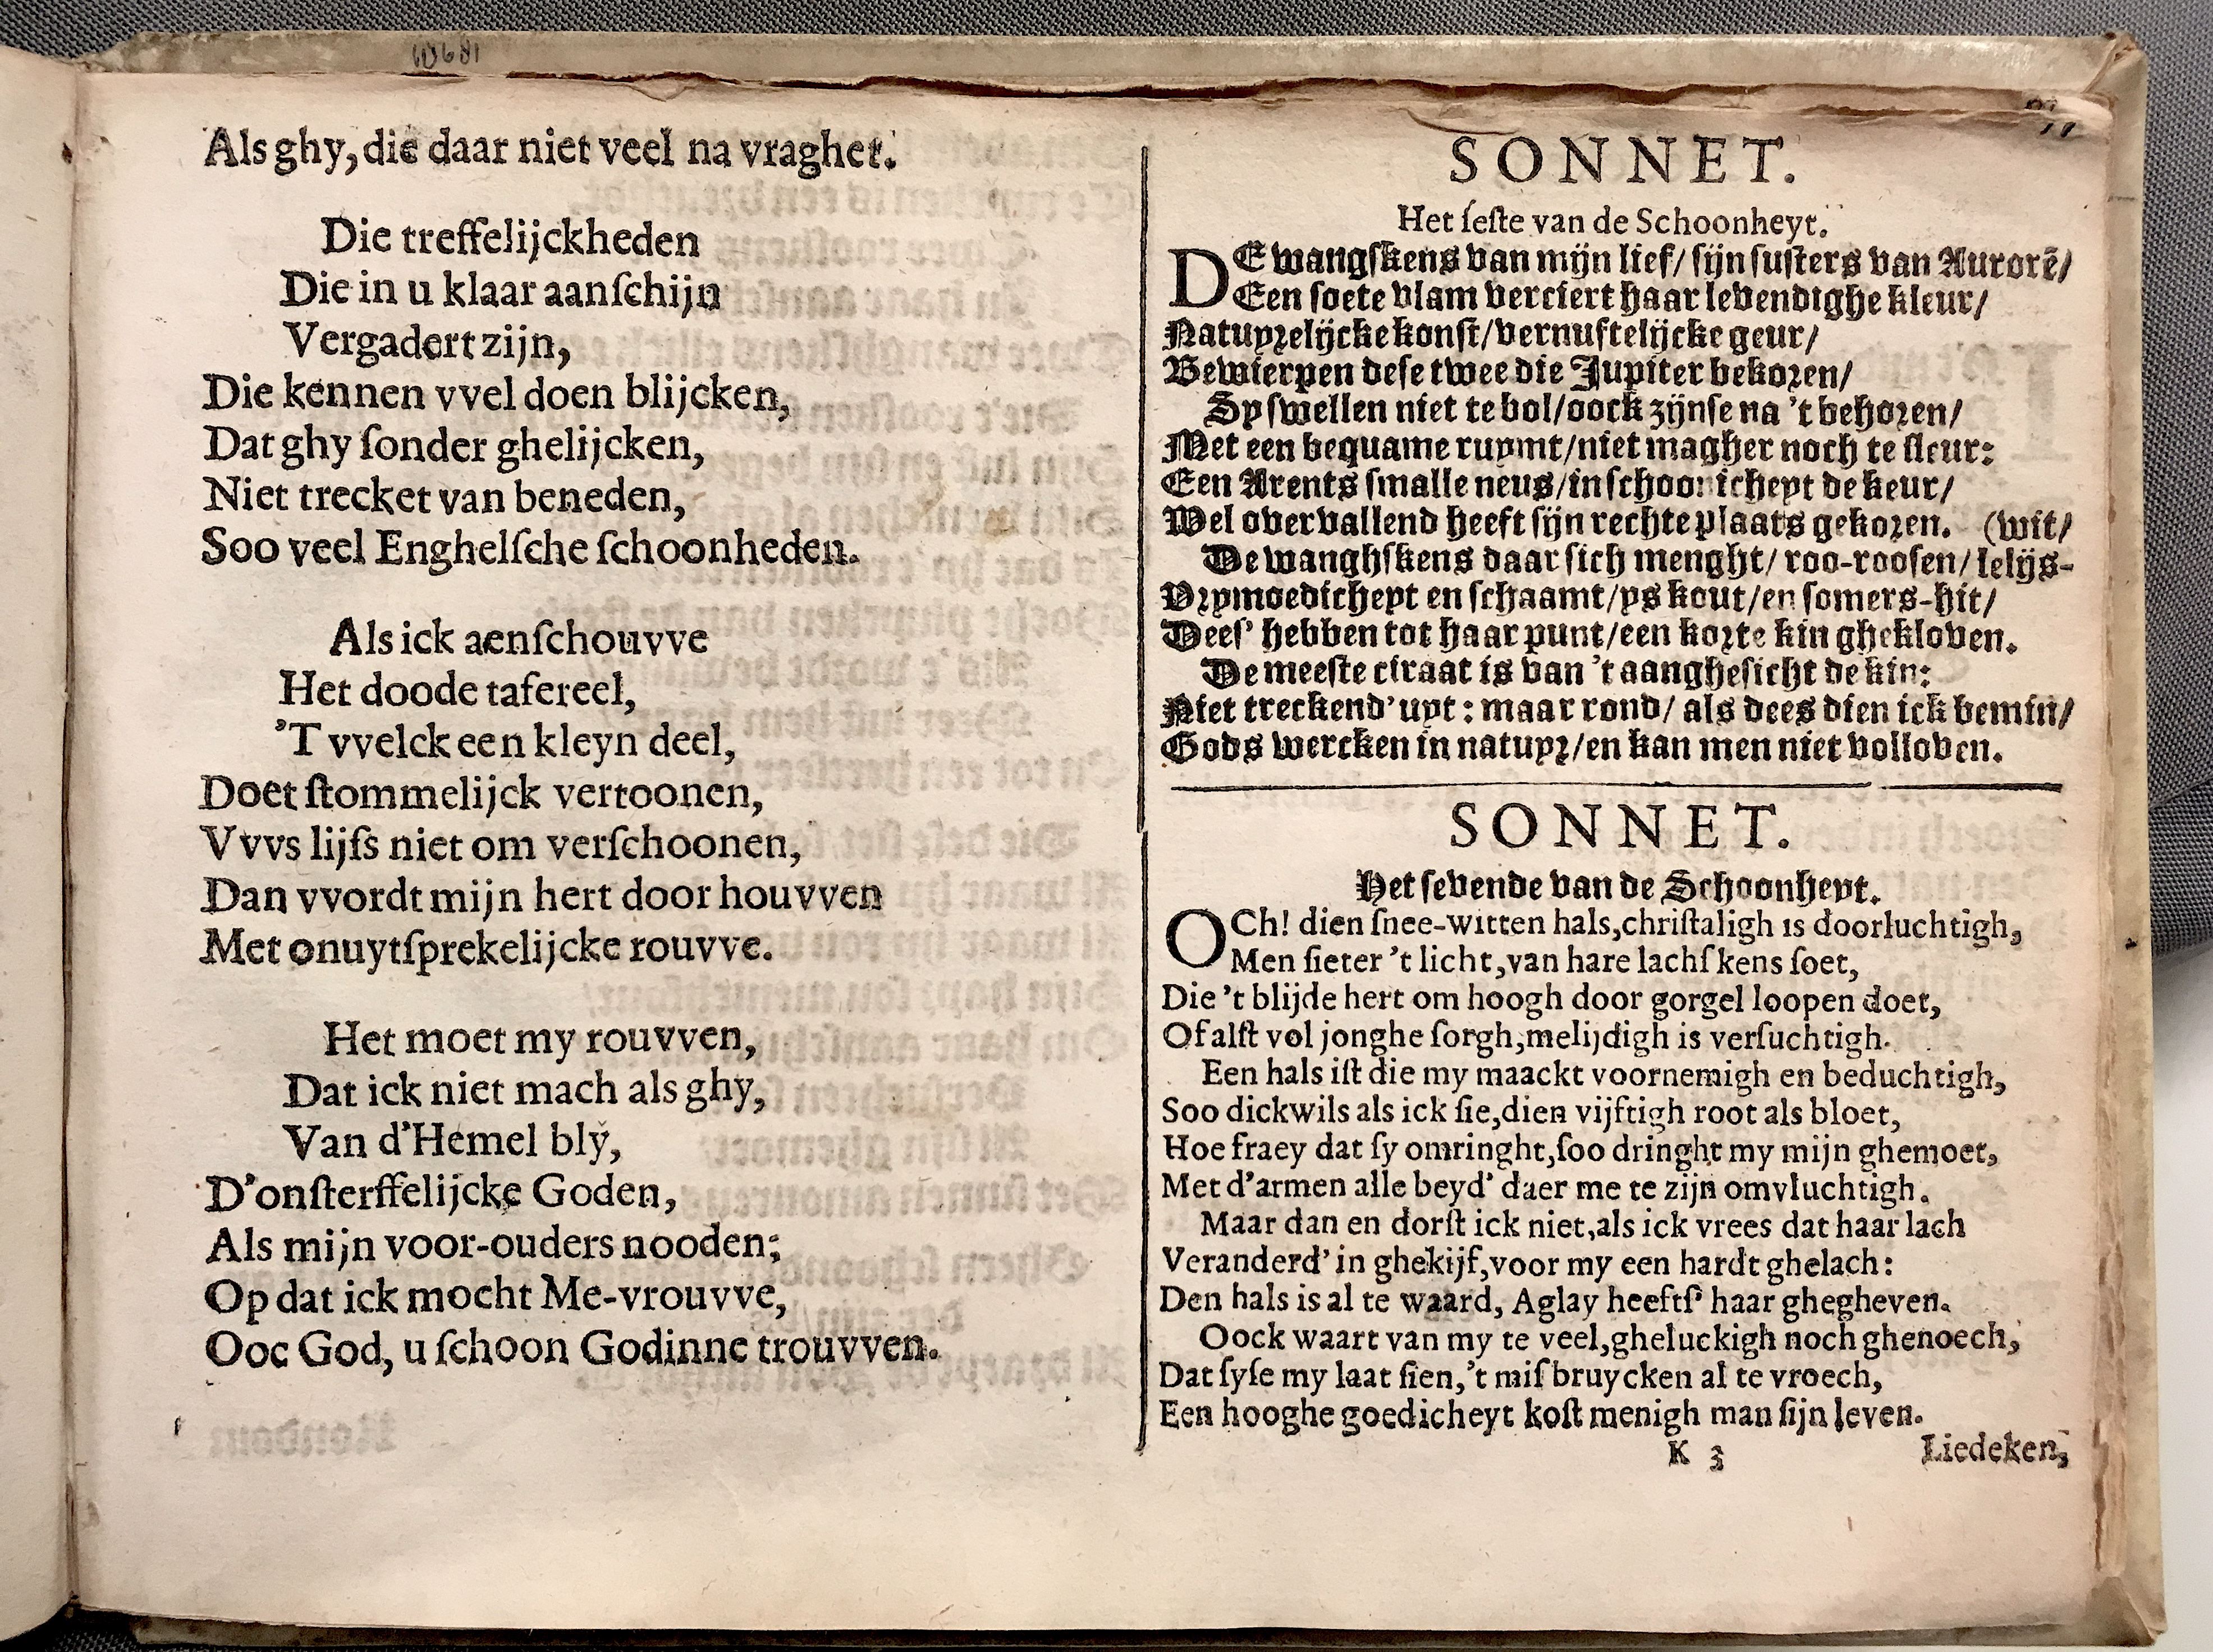 Als ghy, die daar niet veel na vraghet.
Die treffelijckheden
Die in u klaar aanſchijn
Vergadert zijn,
Die kennen vvel doen blijcken,
Dat ghy ſonder ghelijcken,
Niet trecket van beneden,
Soo veel Enghelſche ſchoonheden.
Als ick aenſchouvve
Het doode tafereel,
'T vvelck een kleyn deel,
Doet ſtommelijck vertoonen,
Vvvs lijfs niet om verſchoonen,
Dan vvordt mijn hert door houvven
Met onuytſprekelijcke rouvve.
Het moet my rouvven,
Dat ick niet mach als ghy,
Van d'Hemel blÿ,
D'onſterffelijcke Goden,
Als mijn voor-ouders nooden;
Op dat ick mocht Me-vrouvve,
Ooc God, u ſchoon Godinne trouvven.
SONNET.
Het ſeſte van de Schoonheyt.
DE wangſkens van mijn lief/ ſijn ſuſters van Aurorē/
Een ſoete vlam verciert haar levendighe kleur/
Natuyrelijcke konſt/vernuftelijcke geur/
Bewierpen deſe twee die Jupiter bekoren/
Sy ſwellen niet te bol/oock zijnſe na 't behoren/
Met een bequame ruymt/niet magher noch te fleur:
Een Arents ſmalle neus/in ſchoonicheyt de keur/
Wel overvallend heeft ſijn rechte plaats gekoren. (wit/
De wanghſkens daar ſich menght/ roo-rooſen/ lelijs-
Vrymoedicheyt en ſchaamt/ys kout/en ſomers-hit/
Dees' hebben tot haar punt/een korte kin ghekloven.
De meeſte ciraat is van 't aangheſicht de kin:
Niet treckend' uyt: maar rond/ als dees dien ick bemin/
Gods wercken in natuyr/en kan men niet volloven.
SONNET.
Het ſevende van de Schoonheyt.
OCh! dien ſnee-witten hals,chriſtaligh is doorluchtigh,
Men ſieter 't licht,van hare lachſkens ſoet,
Die 't blijde hert om hoogh door gorgel loopen doet,
Of alſt vol jonghe ſorgh,melijdigh is verſuchtigh.
Een hals iſt die my maackt voornemigh en beduchtigh,
Soo dickwils als ick ſie,dien vijftigh root als bloet,
Hoe fraey dat ſy omringht,ſoo dringht my mijn ghemoet,
Met d'armen alle beyd' daer me te zijn omvluchtigh.
Maar dan en dorſt ick niet,als ick vrees dat haar lach
Veranderd' in ghekijf,voor my een hardt ghelach:
Den hals is al te waard, Aglay heeftſ' haar ghegheven.
Oock waart van my te veel,gheluckigh noch ghenoech,
Dat ſyſe my laat ſien,'t miſbruycken al te vroech,
Een hooghe goedicheyt koſt menigh man ſijn leven.
K 3 Liedeken,